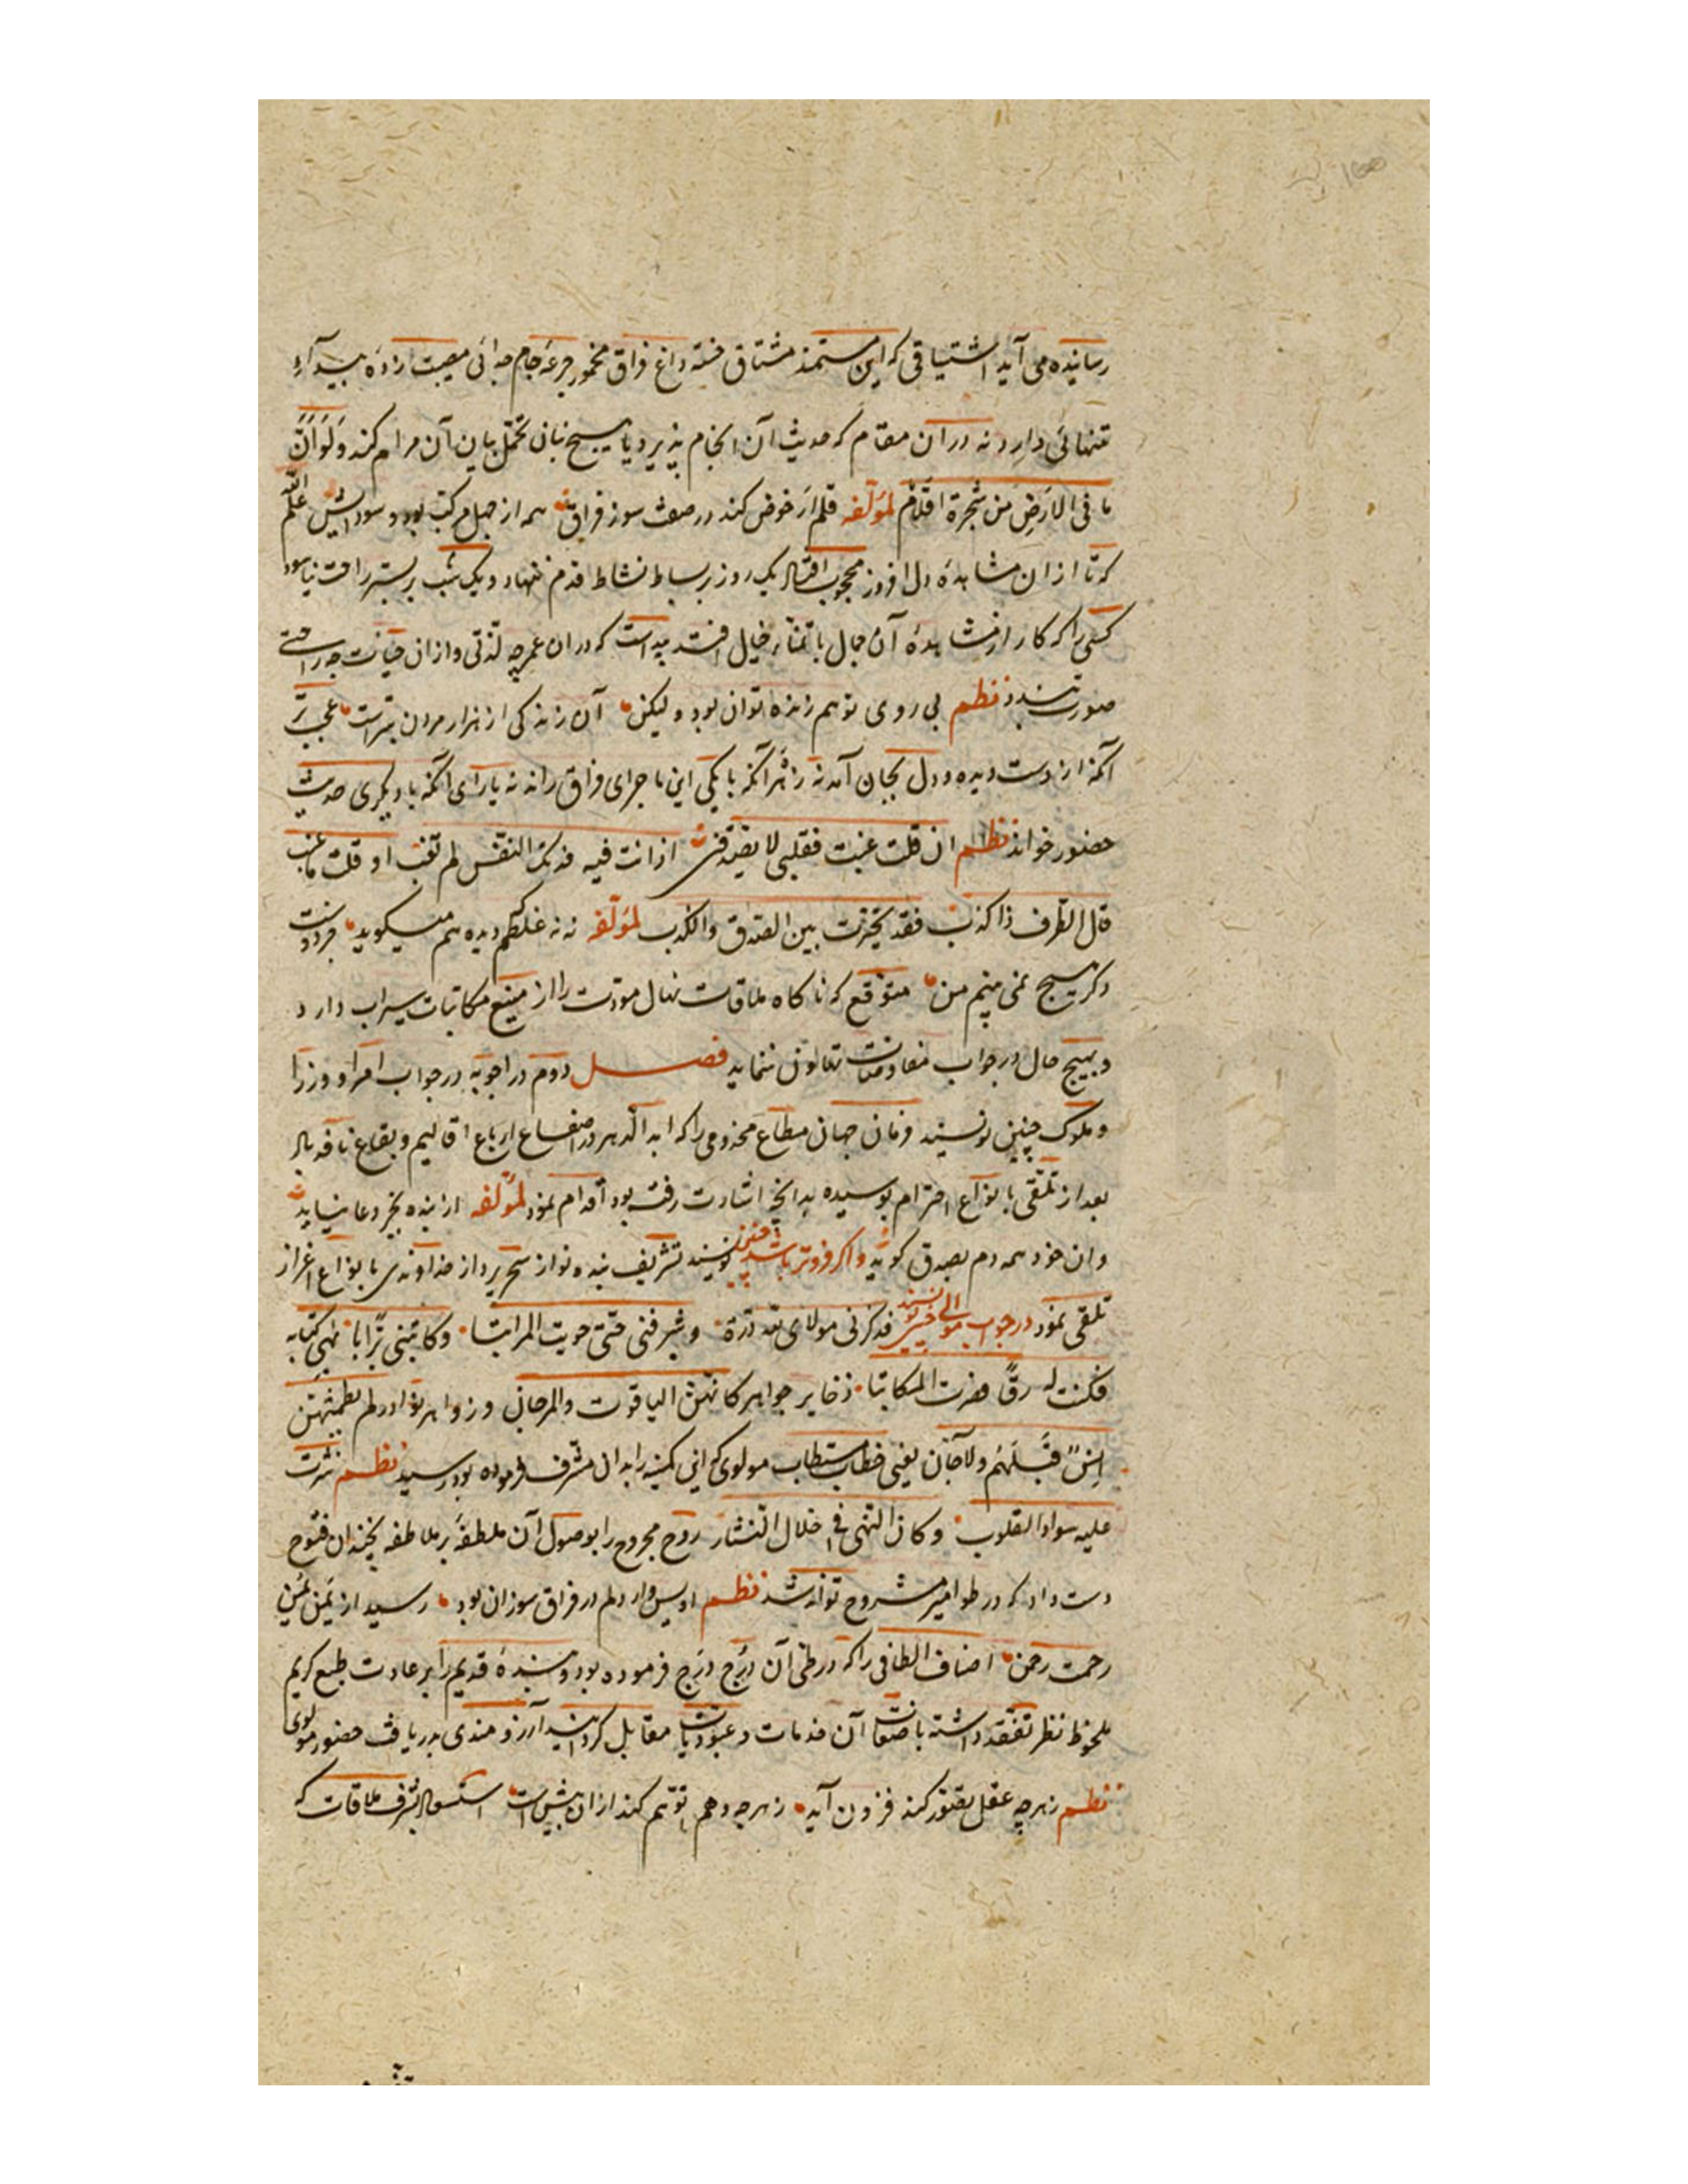 رسانیده می آید اشتیاقی که این مستمند مشتاق خسته داغ فراق مخمور جرعه جام جدائی مصیبت زده بیدآء
تنهائی دارد نه دران مقام که حدیث آن انجام پذیرد یا هیچ زبان تحمل بیان آن مرام کند وَلَو اَنَّ
ما فی الاَرَضِ مِن شَجَرة اَقلَام لمؤلفه قلم ار خوض کند در صفت سوز فراق همه از جهل مرکب بود و سوداییش علم الله
که تا ازان مشاهدهٔ دل افروز محجوب افتاد یک روز بر بساط نشاط قدم ننهاد و یک شب بر بستر راحت نیاسود
کسی را که کار از مشاهدهٔ آن جمال با تمنّاء خیال افتد پیداست که دران عمر چه لذتی و ازان حیات چه راحتی
صورت بندد نظم بی روی تو هم زنده توان بود ولیکن آن زندکی از هزار مردن بترست عجب تر
آنکه از دست دیده و دل بجان آمد نه زَهْره آنکه با یکی این ماجرای فراق راند نه یارای آنکه با دیکری حدیث
حضور خواند نظم ان قلت غبت فقلبی لا یصدقنی اذ انت فیه فدتک النفس لم تغب او قلت ما غبت
قال الطرف ذا کذب فقد تحیّرت بین الصّدق والکذب لمؤلفه نه نه غلطم دیده هم میکوید فردوست
دکر هیچ نمی بینم من متوقع که تا کاه ملاقات نهال مودّت را از منبع مکاتبات سیراب دارد
و بهیچ حال در جواب مفاوضات تهاون ننماید فصل دوم در اجوبه در جواب امرا و وزرا
و ملوک چنین نویسند فرمان جهان مطاع مخدومی را که ابد الدهر در اصقاع ارباع اقالیم و بقاع نافذ باد
بعد از تلقی بانواع احترام بوسیده بدانچه اشارت رفته بود اقدام نمود لمؤلفه از بنده بجز دعا نیاید
وان خود همه دم بصدق کوید و اکر فروتر باشد چنین نویسند تشریف بنده نواز تحریر داز خداوندی بانواع اعزاز
تلقی نمود در جواب موالی چنین نویسند فذکرنی مولای لله درّه وشرفنی حتّی حویت المراتبا وکاتبنی برّا بابهی کتابه
فکنت له رقّاً فصرت المکاتبا ذخایر جواهر کانهنّ الیاقوت والمرجان و زواهر نوادر لم یطمثهنّ
اِنسٌ قَبلَهُم ولا جَآن یعنی خطاب مستطاب مولوی که این کمینه را بدان مشرف فرموده بود رسید نظم نثرت
علیه سواد القلوب وکان النهی فی خلال النثار روح مجروح را بوصول آن ملطفهٔ بر ملاطفه نچندان فتوح
دست داد که در طوامیر مشروح تواند شد نظم اویس وار دلم در فراق سوزان بود رسید از یَمن یُمنِ
رحمت رحمن اصناف الطافی را که در طی آن دُرج دَرج فرموده بود و بندهٔ قدیم را بر عادت طبع کریم
ملحوظ نظر تفقد داشته باضعاف آن خدمات و عبودیات مقابل کردانید آرزومندی بدریافت حضور مولوی
نظم زهر چه عقل تصوّر کند فزون آید زهرچه وهم توهّم کند ازان بیش است استسعاد بشرف ملاقات که